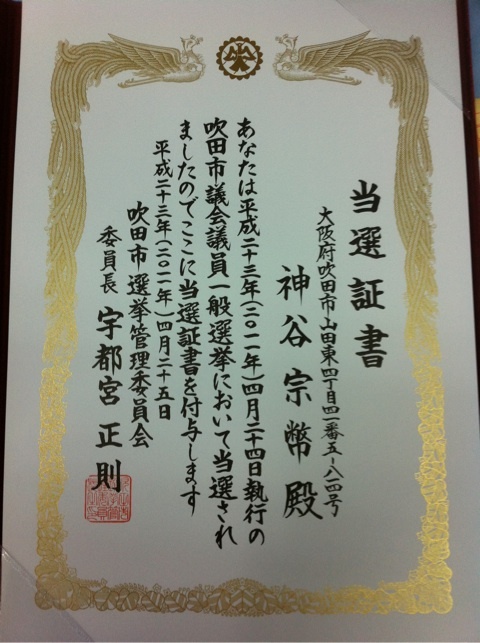 当選証書
大阪府吹田市山田東四丁目四一番五-八一四号
神谷宗幣殿
あなたは平成二十三年(二〇一一年)四月二十四日執行の
吹田市議会議員一般選挙において当選され
ましたのでここに当選証書を付与します
平成二十三年(二〇一一年)四月二十五日
吹田市選挙管理委員会
委員長 宇都宮正則